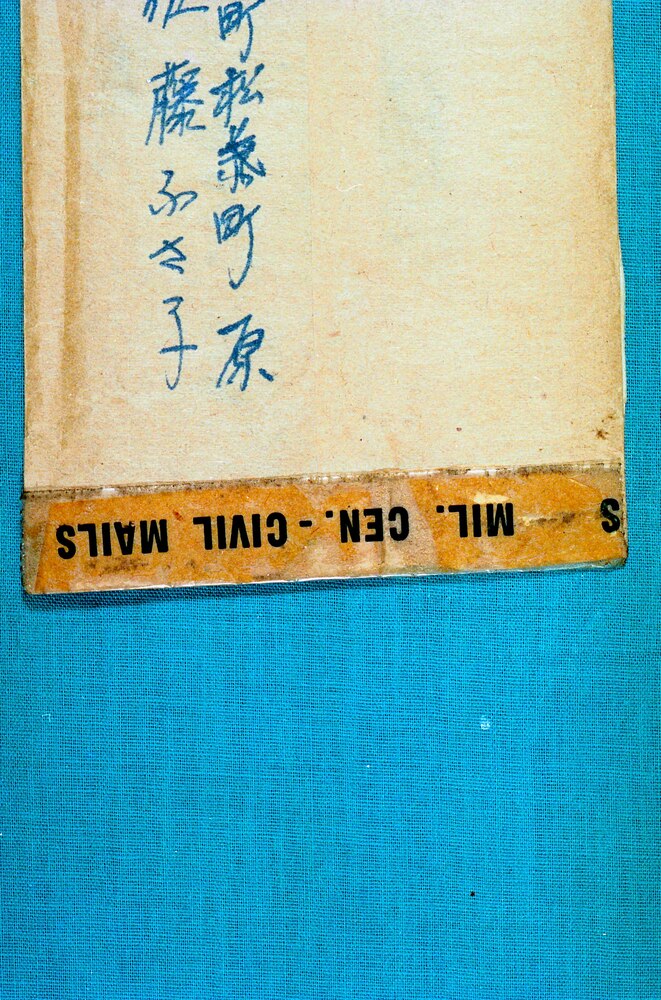 町松葉町 原
佐藤ふさ子
MIL. CEN. - CIVIL MAILS
S